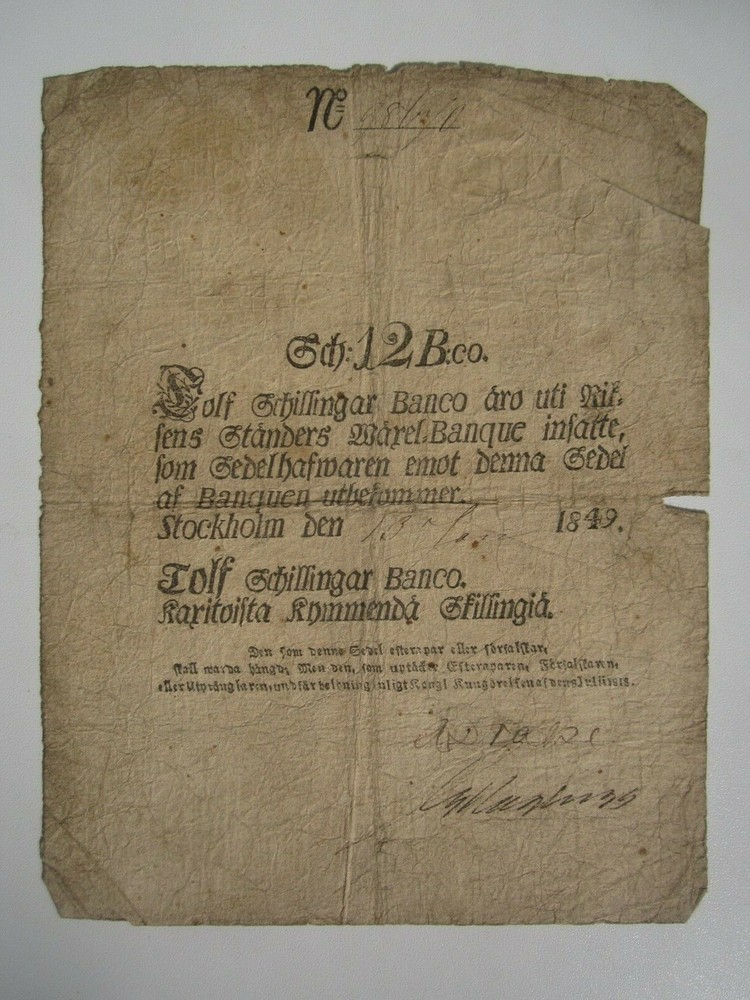 No
Sch: 12 B:co.
Tolf Schillingar Banco äro uti Rik-
sens Ständers Wäxel-Banque insatte,
som Sedelhafwaren emot denna Sedel
af Banquen utbekommer.
Stockholm den 1849.
Tolf Schillingar Banco.
Kaxitoista Kymmendä Skillingiä.
Den som denne Sedel efterapar eller förfalskar,
skall warda hängd; Men den, som uptäcker Efteraparen, Förfalskaren,
eller Utprånglaren, undfår belöning enligt Kongl Kungörelsen af den